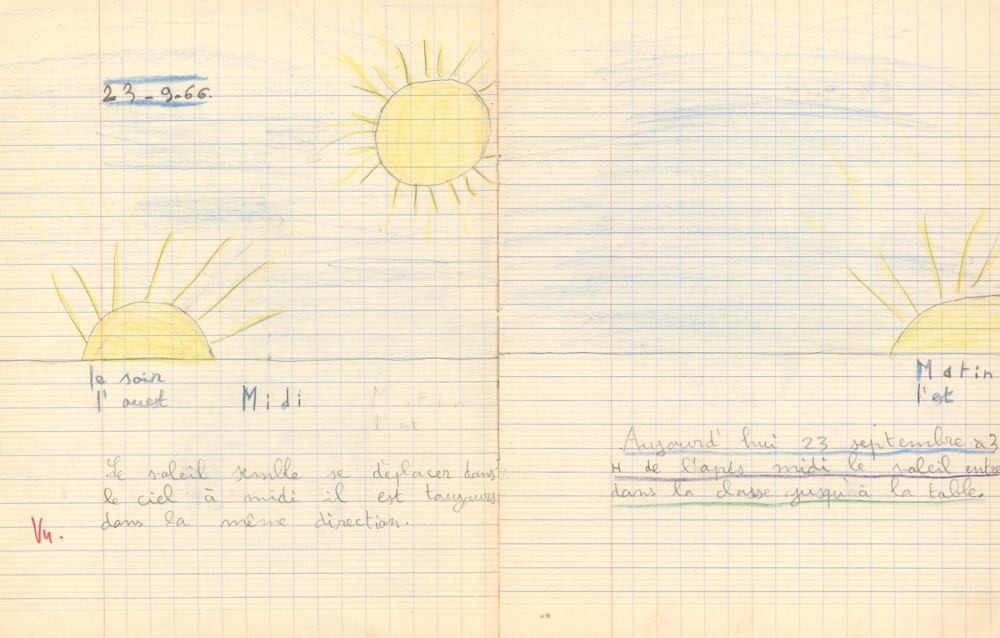 23-9-66.
le soir
l'ouest
Midi
Matin
l'est
Le soleil semble se déplacer dans
le ciel à midi il est toujours
dans la même direction.
Vu.
Matin
l'est
Aujourd'hui 23 septembre à 3
H de l'après midi le soleil entre
dans la classe jusqu'à la table.